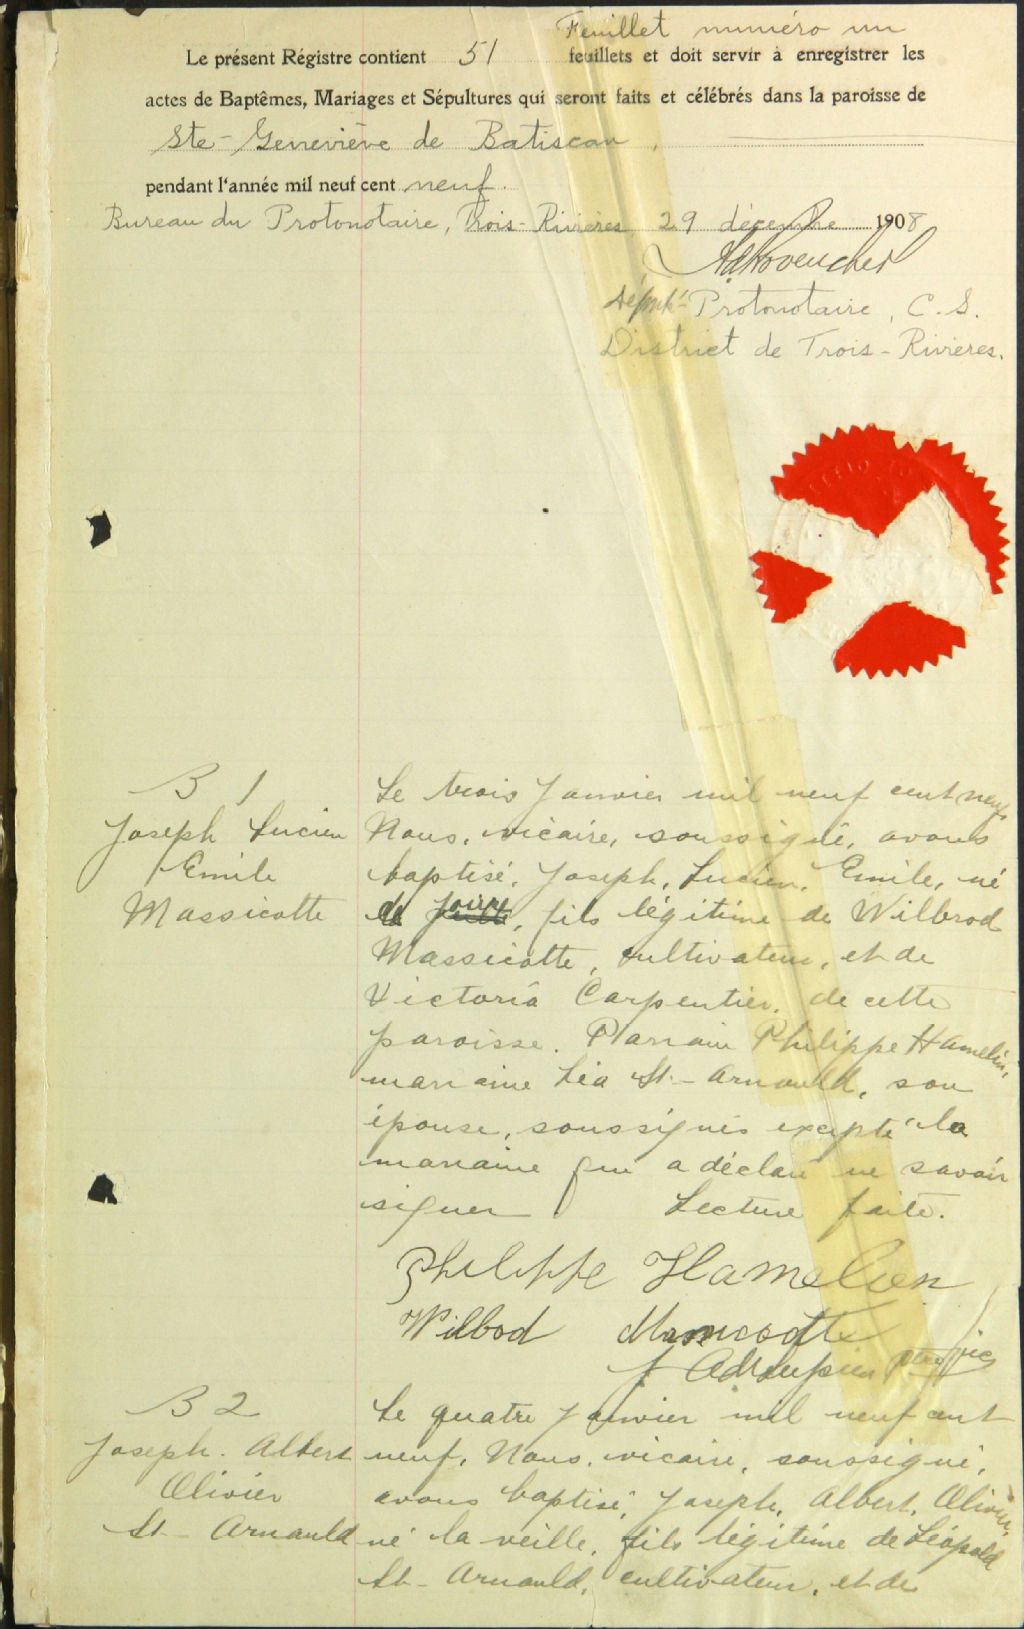 Feuillet numéro un
Le présent Régistre contient 51 feuillets et doit servir à enregistrer les
actes de Baptêmes, Mariages et Sépultures qui seront faits et célébrés dans la paroisse de
Ste-Geneviève de Batiscan,
pendant l'année mil neuf cent neuf.
Bureau du Protonotaire, Trois-Rivières 29 décembre 1908
Député Protonotaire, C. S.
District de Trois-Rivières.
B 1
Joseph Lucien
Emile
Massicotte
Le trois Janvier mil neuf cent neuf,
Nous, vicaire, soussigné, avons
baptisé, Joseph, Lucien, Emile, né
, fils légitime de Wilbrod
Massicotte, cultivateur, et de
Victoria Carpentier, de cette
paroisse. Parrain Philippe Hamelin,
marraine Léa St-Arnauld, son
épouse, soussignés excepté la
marraine qui a déclaré ne savoir
signer Lecture faite.
Philippe Hamelien
Wilbod Massicotte
ptre vic
B 2
Joseph. Albert
Olivier
St-Arnauld
Le quatre Janvier mil neuf cent
neuf, Nous, vicaire, soussigné,
avons baptisé, Joseph, Albert, Olivier,
né la veille, fils légitime de Léopold
St-Arnauld, cultivateur, et de